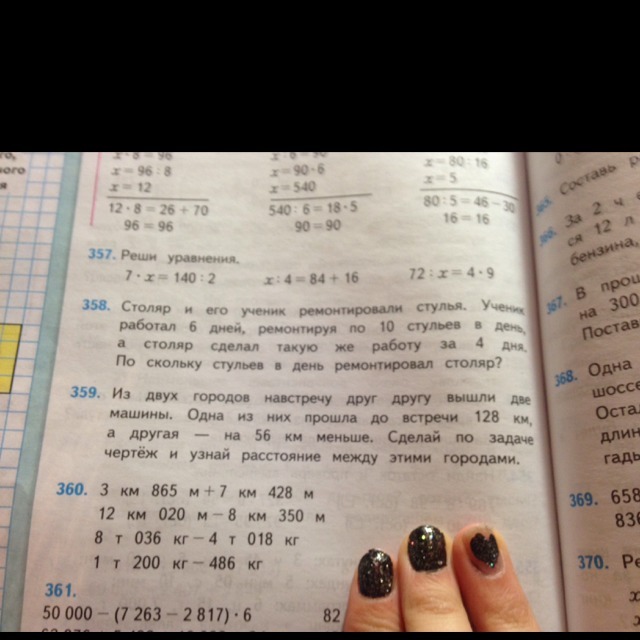 ного
я
x · 8 = 96
x = 96 : 8
x = 12
12 · 8 = 26 + 70
96 = 96
x : 6 = 90
x = 90 · 6
x = 540
540 : 6 = 18 · 5
90 = 90
x = 80 : 16
x = 5
80 : 5 = 46 – 30
16 = 16
357. Реши уравнения.
7 · x = 140 : 2 x : 4 = 84 + 16 72 : x = 4 · 9
358. Столяр и его ученик ремонтировали стулья. Ученик
работал 6 дней, ремонтируя по 10 стульев в день,
а столяр сделал такую же работу за 4 дня.
По скольку стульев в день ремонтировал столяр?
359. Из двух городов навстречу друг другу вышли две
машины. Одна из них прошла до встречи 128 км,
а другая — на 56 км меньше. Сделай по задаче
чертёж и узнай расстояние между этими городами.
360. 3 км 865 м + 7 км 428 м
12 км 020 м – 8 км 350 м
8 т 036 кг – 4 т 018 кг
1 т 200 кг – 486 кг
361.
50 000 – (7 263 – 2 817) · 6 82
365. Составь
366. За 2 ч
ся 12 л
бензина,
367. В прош
на 300
Постав
368. Одна
шоссе
Оста
длин
гады
369. 658
836
370. Ре
x